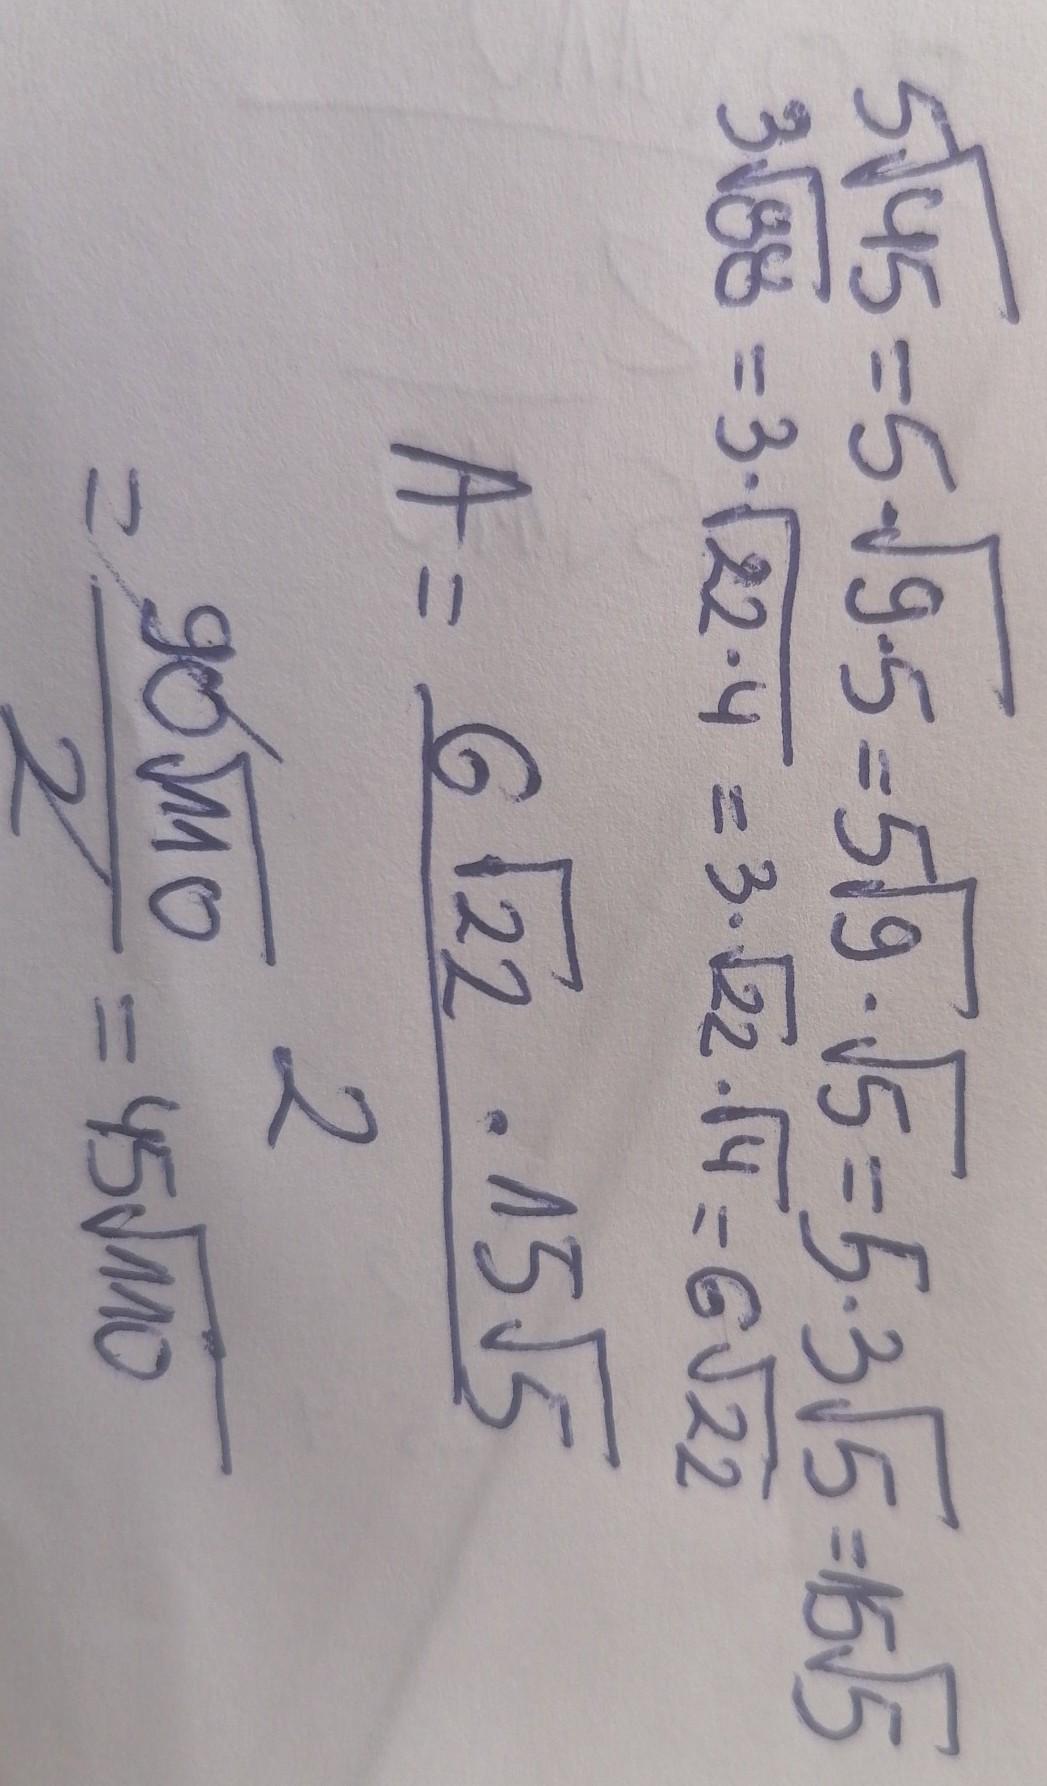 5√45 = 5·√9·5 = 5√9·√5 = 5·3√5 = 15√5
3√88 = 3·√22·4 = 3·√22·√4 = 6√22
A = 6√22 · 15√5
2
= 90√110 / 2 = 45√110